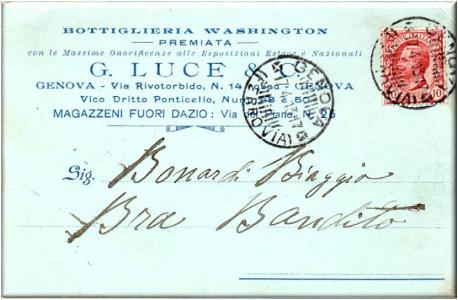 BOTTIGLIERIA WASHINGTON
PREMIATA
con le Massime Onorificenze alle Esposizioni Estere e Nazionali
G. LUCE & C.
GENOVA - Via Rivotorbido, N. 14 GENOVA
Vico Dritto Ponticello, 50
MAGAZZENI FUORI DAZIO: Via N. 26
GENOVA
(FERROVIA)
10
Sig. Bonardi Biaggio
Bra Bandito